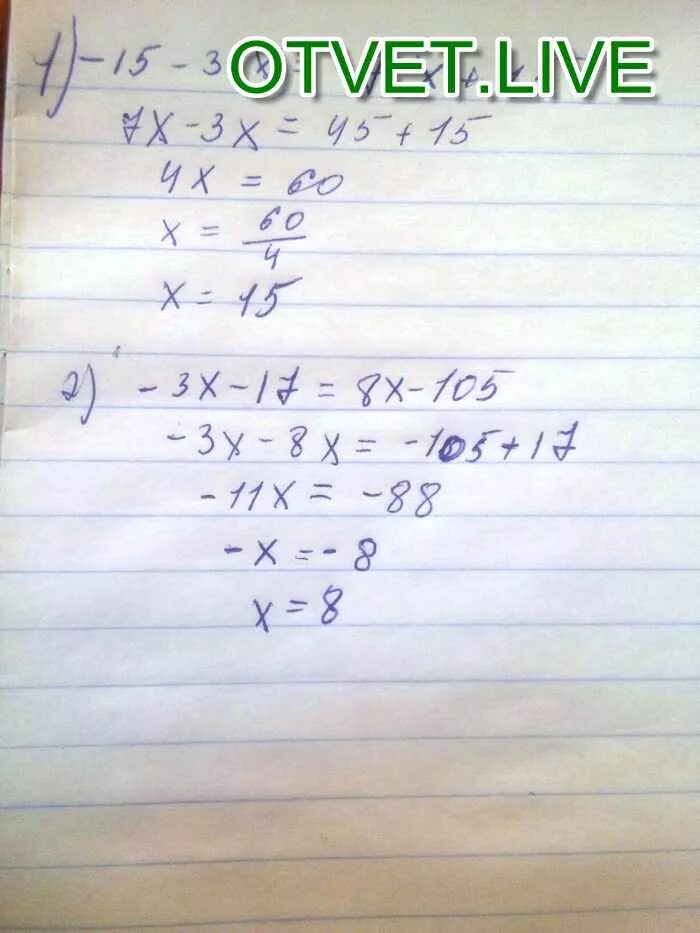 1) -15 - 3x
OTVET.LIVE
7x - 3x = 45 + 15
4x = 60
x = 60/4
x = 15
2) -3x - 17 = 8x - 105
-3x - 8x = -105 + 17
-11x = -88
-x = -8
x = 8